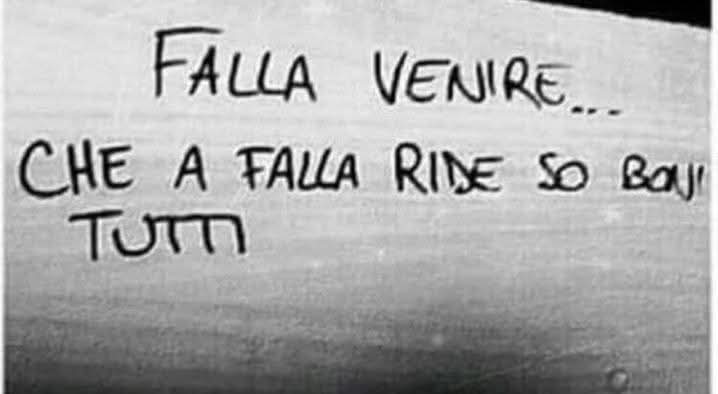 FALLA VENIRE...
CHE A FALLA RIDE SO BONI
TUTTI